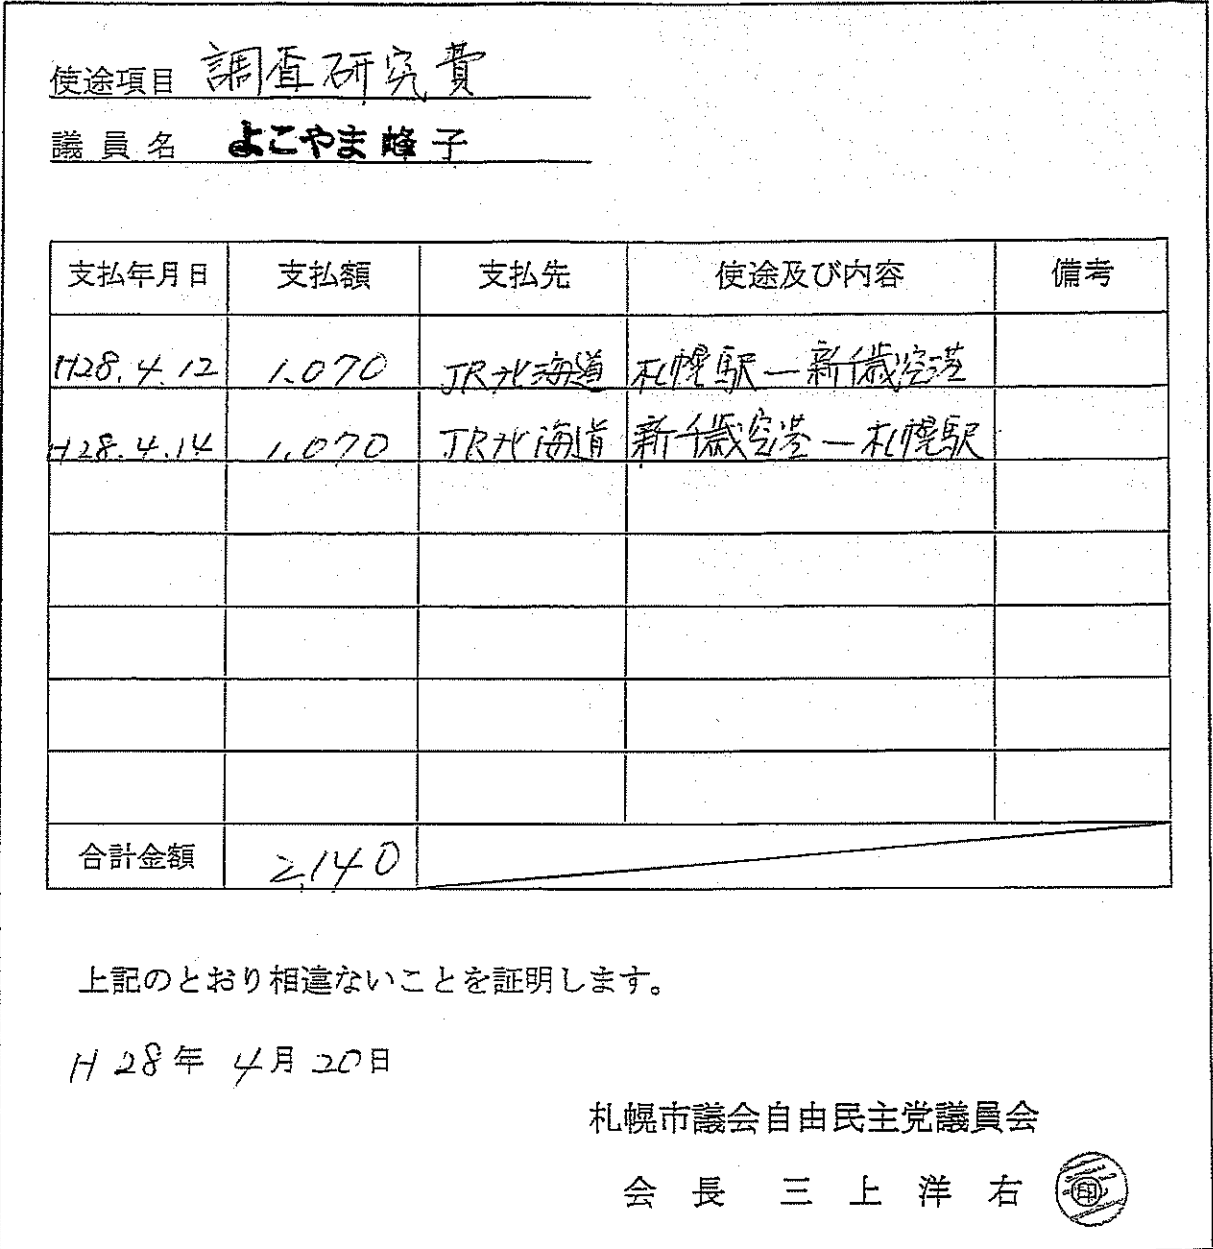 使途項目 調査研究費
議員名 よこやま峰子
支払年月日 支払額 支払先 使途及び内容 備考
H28.4.12 1,070 JR北海道 札幌駅―新千歳空港
H28.4.14 1,070 JR北海道 新千歳空港―札幌駅
合計金額 2,140
上記のとおり相違ないことを証明します。
H28年 4月20日
札幌市議会自由民主党議員会
会長 三上洋右 印